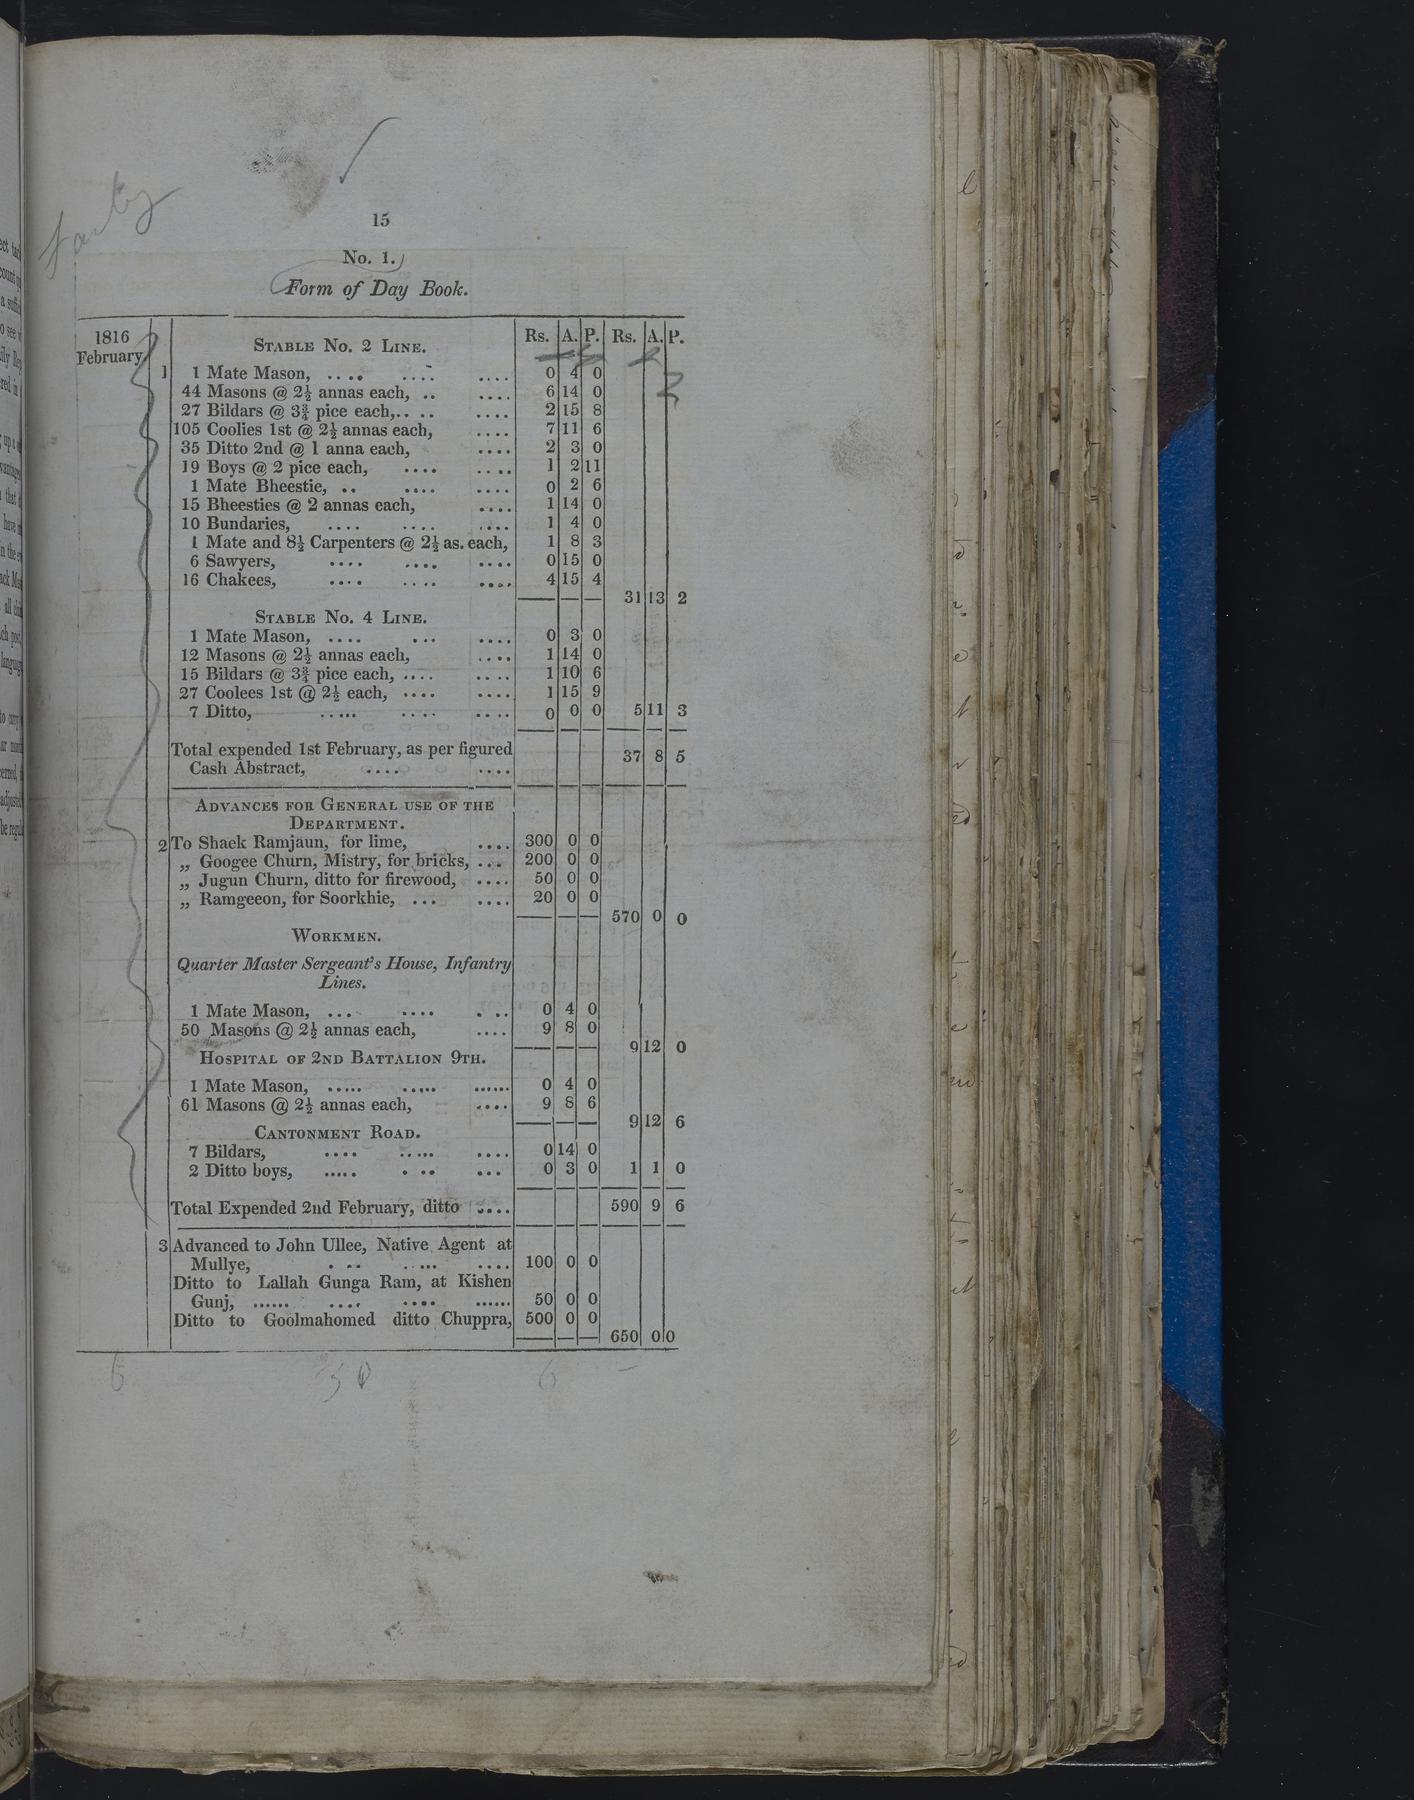 15
No. 1.
Form of Day Book.
1816 February
Rs. A. P. Rs. A. P.
STABLE No. 2 LINE.
1 1 Mate Mason, .... .... .... 0 4 0
44 Masons @ 2½ annas each, .. .... 6 14 0
27 Bildars @ 3¾ pice each,.. .. .... 2 15 8
105 Coolies 1st @ 2½ annas each, .... 7 11 6
35 Ditto 2nd @ 1 anna each, .... 2 3 0
19 Boys @ 2 pice each, .... .... 1 2 11
1 Mate Bheestie, .. .... .... 0 2 6
15 Bheesties @ 2 annas each, .... 1 14 0
10 Bundaries, .... .... .... 1 4 0
1 Mate and 8½ Carpenters @ 2½ as. each, 1 8 3
6 Sawyers, .... .... .... 0 15 0
16 Chakees, .... .... .... 4 15 4
31 13 2
STABLE No. 4 LINE.
1 Mate Mason, .... ... .... 0 3 0
12 Masons @ 2½ annas each, .... 1 14 0
15 Bildars @ 3¾ pice each, .... .... 1 10 6
27 Coolees 1st @ 2½ each, .... .... 1 15 9
7 Ditto, ..... .... .... 0 0 0 5 11 3
Total expended 1st February, as per figured
Cash Abstract, .... .... 37 8 5
ADVANCES FOR GENERAL USE OF THE
DEPARTMENT.
2 To Shaek Ramjaun, for lime, .... 300 0 0
„ Googee Churn, Mistry, for bricks, ... 200 0 0
„ Jugun Churn, ditto for firewood, .... 50 0 0
„ Ramgeeon, for Soorkhie, ... .... 20 0 0
570 0 0
WORKMEN.
Quarter Master Sergeant's House, Infantry
Lines.
1 Mate Mason, ... .... . .. 0 4 0
50 Masons @ 2½ annas each, .... 9 8 0
9 12 0
HOSPITAL OF 2ND BATTALION 9TH.
1 Mate Mason, ..... ..... ...... 0 4 0
61 Masons @ 2½ annas each, .... 9 8 6
9 12 6
CANTONMENT ROAD.
7 Bildars, .... ..... .... 0 14 0
2 Ditto boys, ..... . .. ... 0 3 0 1 1 0
Total Expended 2nd February, ditto .... 590 9 6
3 Advanced to John Ullee, Native Agent at
Mullye, . .. ..... .... 100 0 0
Ditto to Lallah Gunga Ram, at Kishen
Gunj, ...... .... .... ...... 50 0 0
Ditto to Goolmahomed ditto Chuppra, 500 0 0
650 0 0